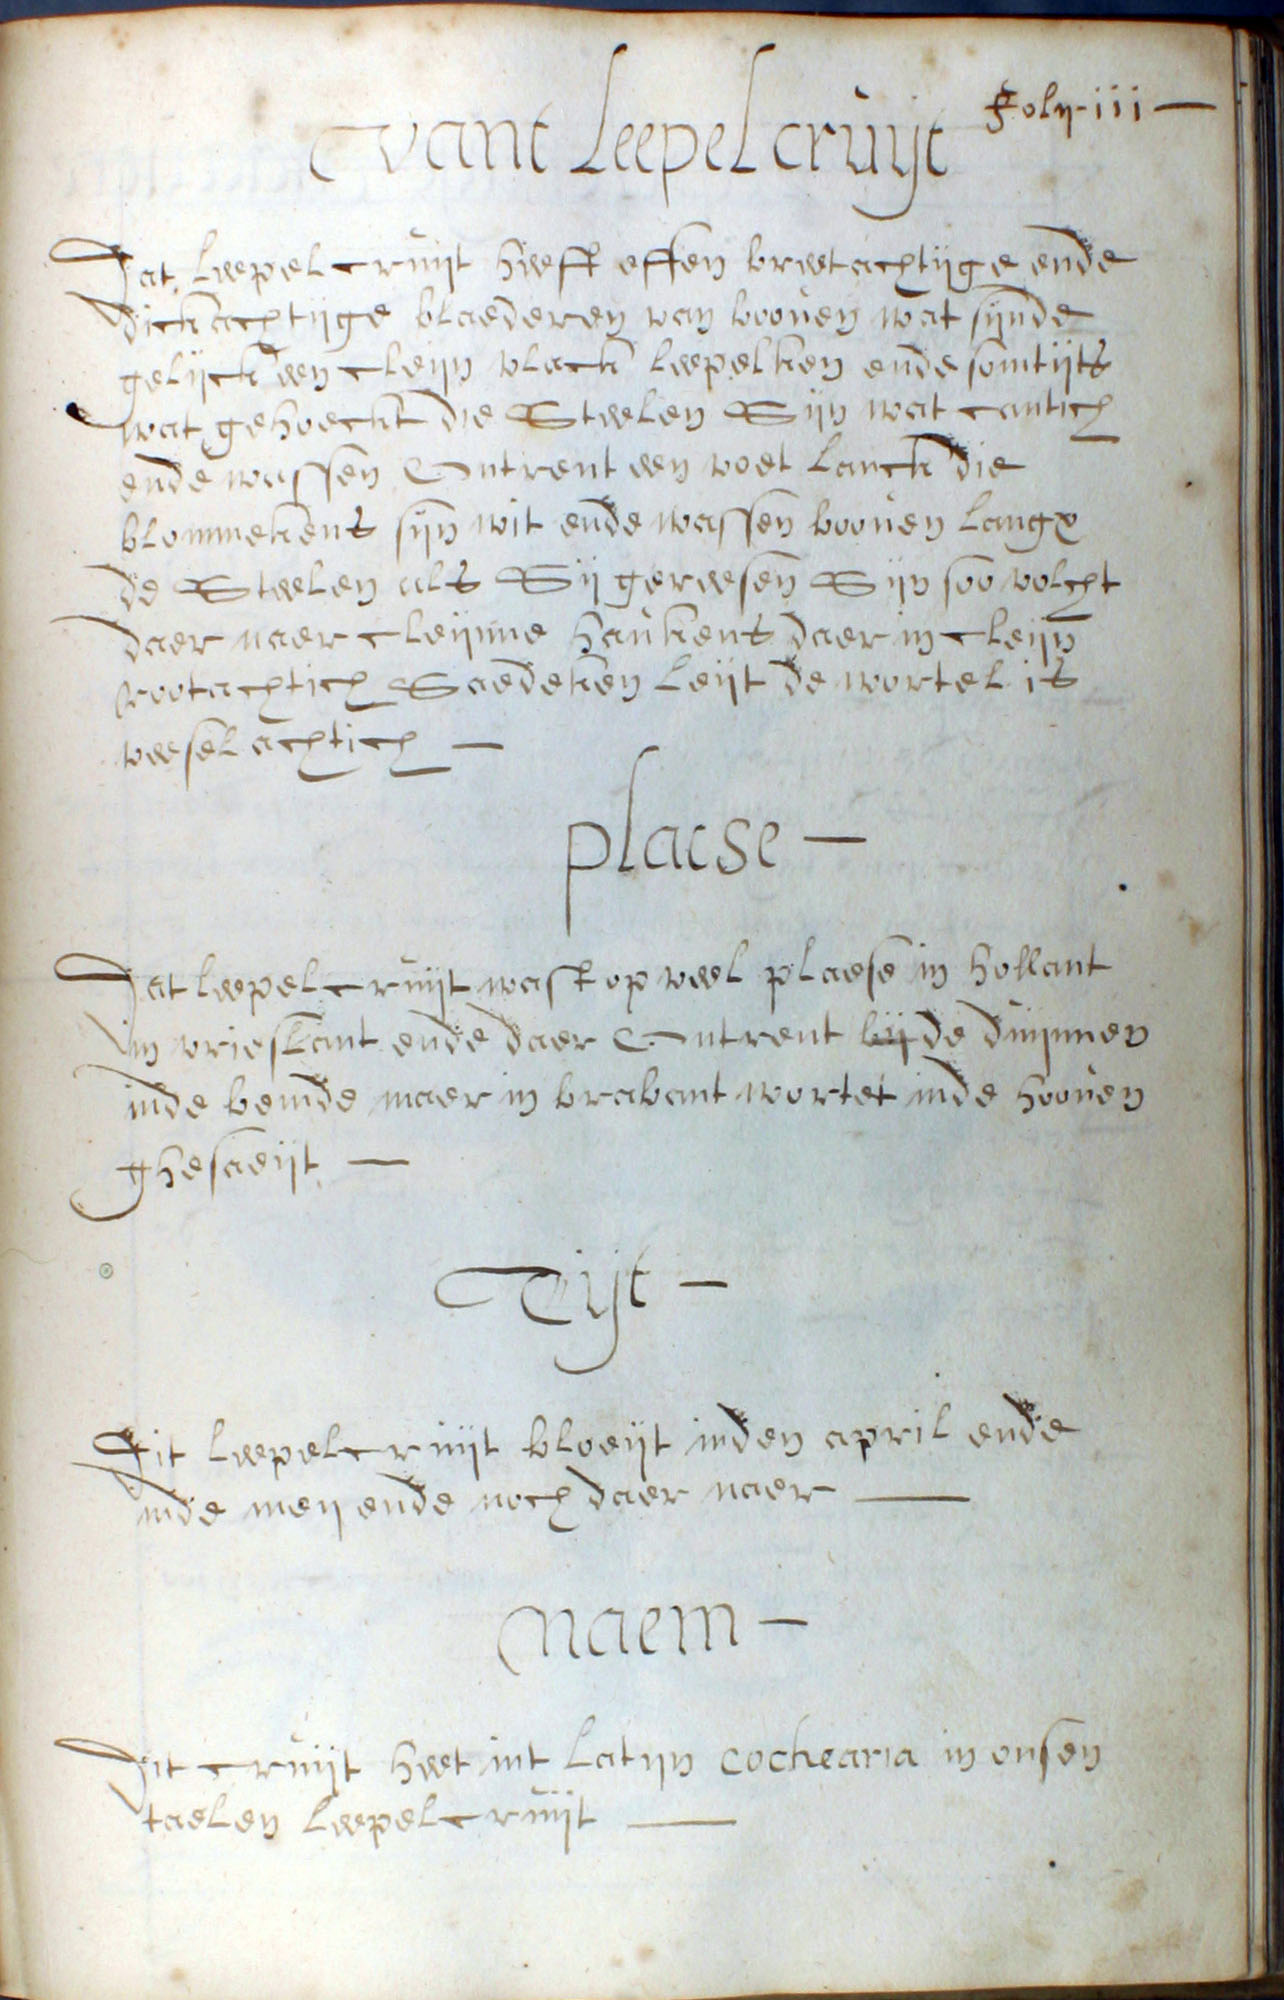 Foly-iii —
Vant Leepelcruÿt
Dat Leepelcruijt heeft effen breetachtijge ende
dickachtijge blaederen van booven wat sijnde
gelijck een cleijn vlack leepelken ende somtijts
wat gehoeckt die Steelen Sijn wat cantich
ende wassen Ontrent een voet lanck die
blommekens sijn wit ende wassen booven langx
de Steelen als Sij geresen Sijn soo volcht
daer naer cleijnne haukens daer in cleijn
rootachtich Saedeken leijt de wortel is
veselachtich —
placse —
Dat leepelcruijt wast op veel plaese in hollant
in vrieslant ende daer Ontrent bij de duijnnen
inde bemde maer in brabant wortet inde hooven
ghesaeijt —
Tijt —
Dit leepelcruijt bloeijt inden april ende
inde meij ende noch daer naer —
Naem —
Dit cruijt heet int Latijn cochearia in onsen
taelen leepelcruijt —